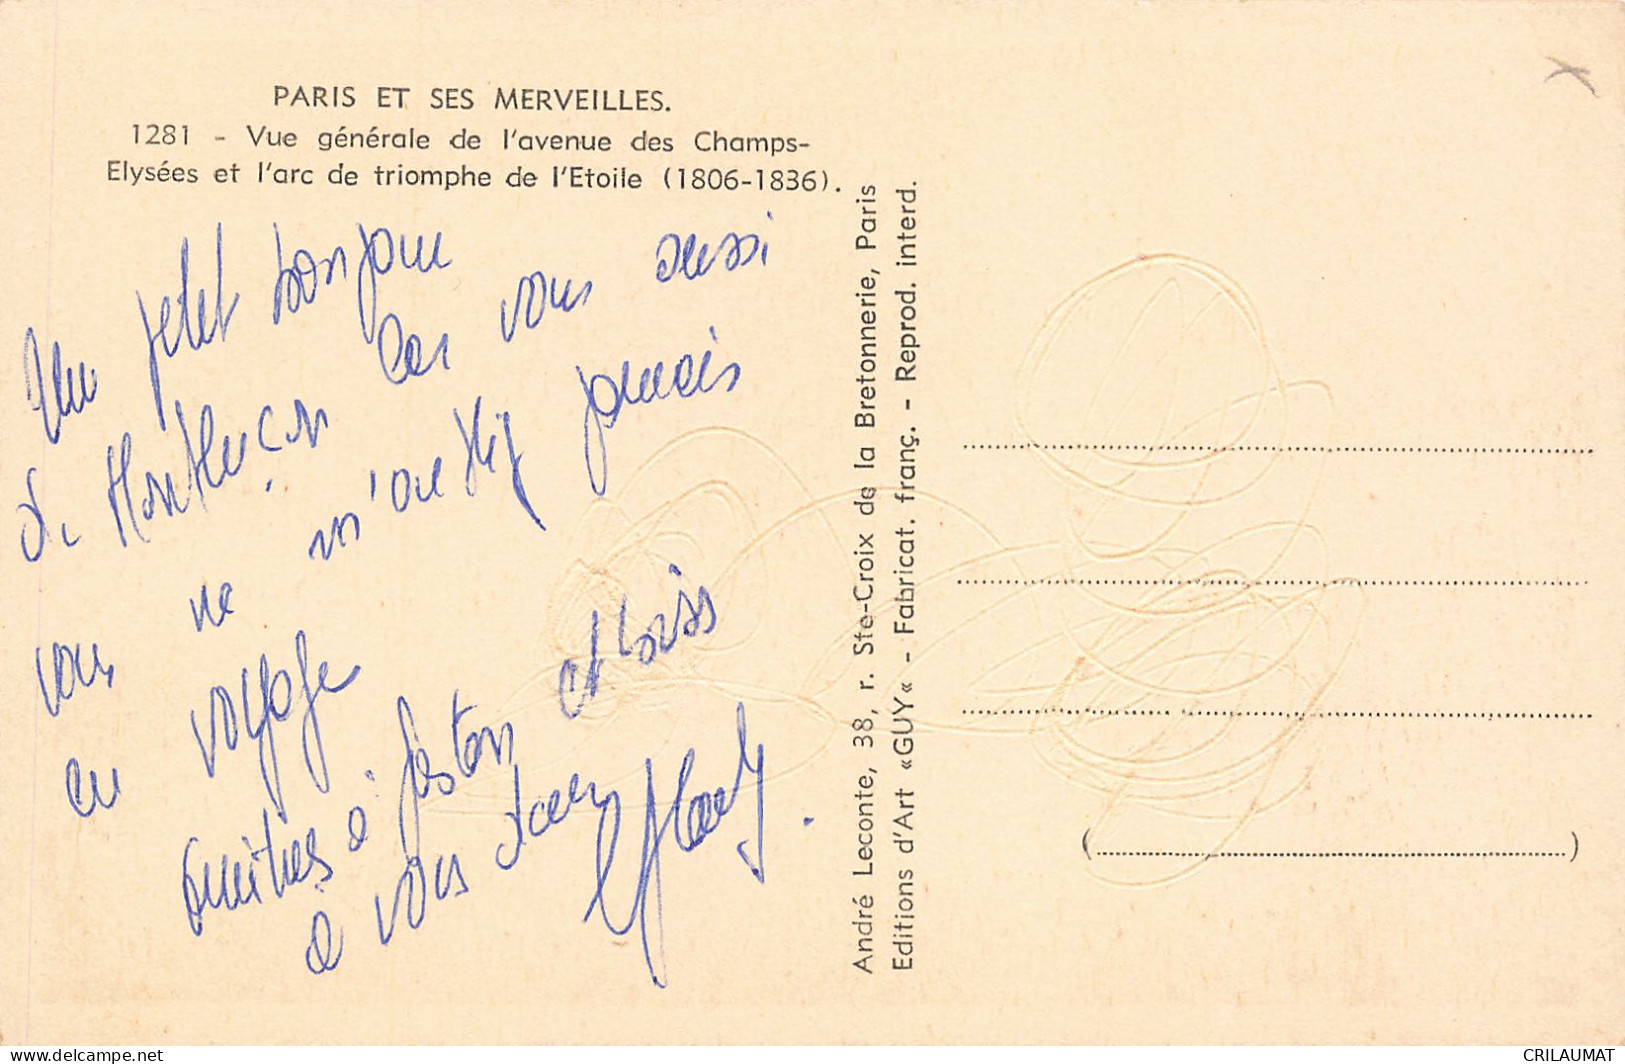 PARIS ET SES MERVEILLES.
1281 - Vue générale de l'avenue des Champs-
Elysées et l'arc de triomphe de l'Etoile (1806-1836).
Un petit bonjour
de Montluçon car vous aussi
vous ne m'oubliez jamais
en voyage
Amitiés à Gaston et baisers
à vous deux
André Leconte, 38, r. Ste-Croix de la Bretonnerie, Paris
Editions d'Art «GUY« - Fabricat. franç. - Reprod. interd.
(                    )
CRILAUMAT